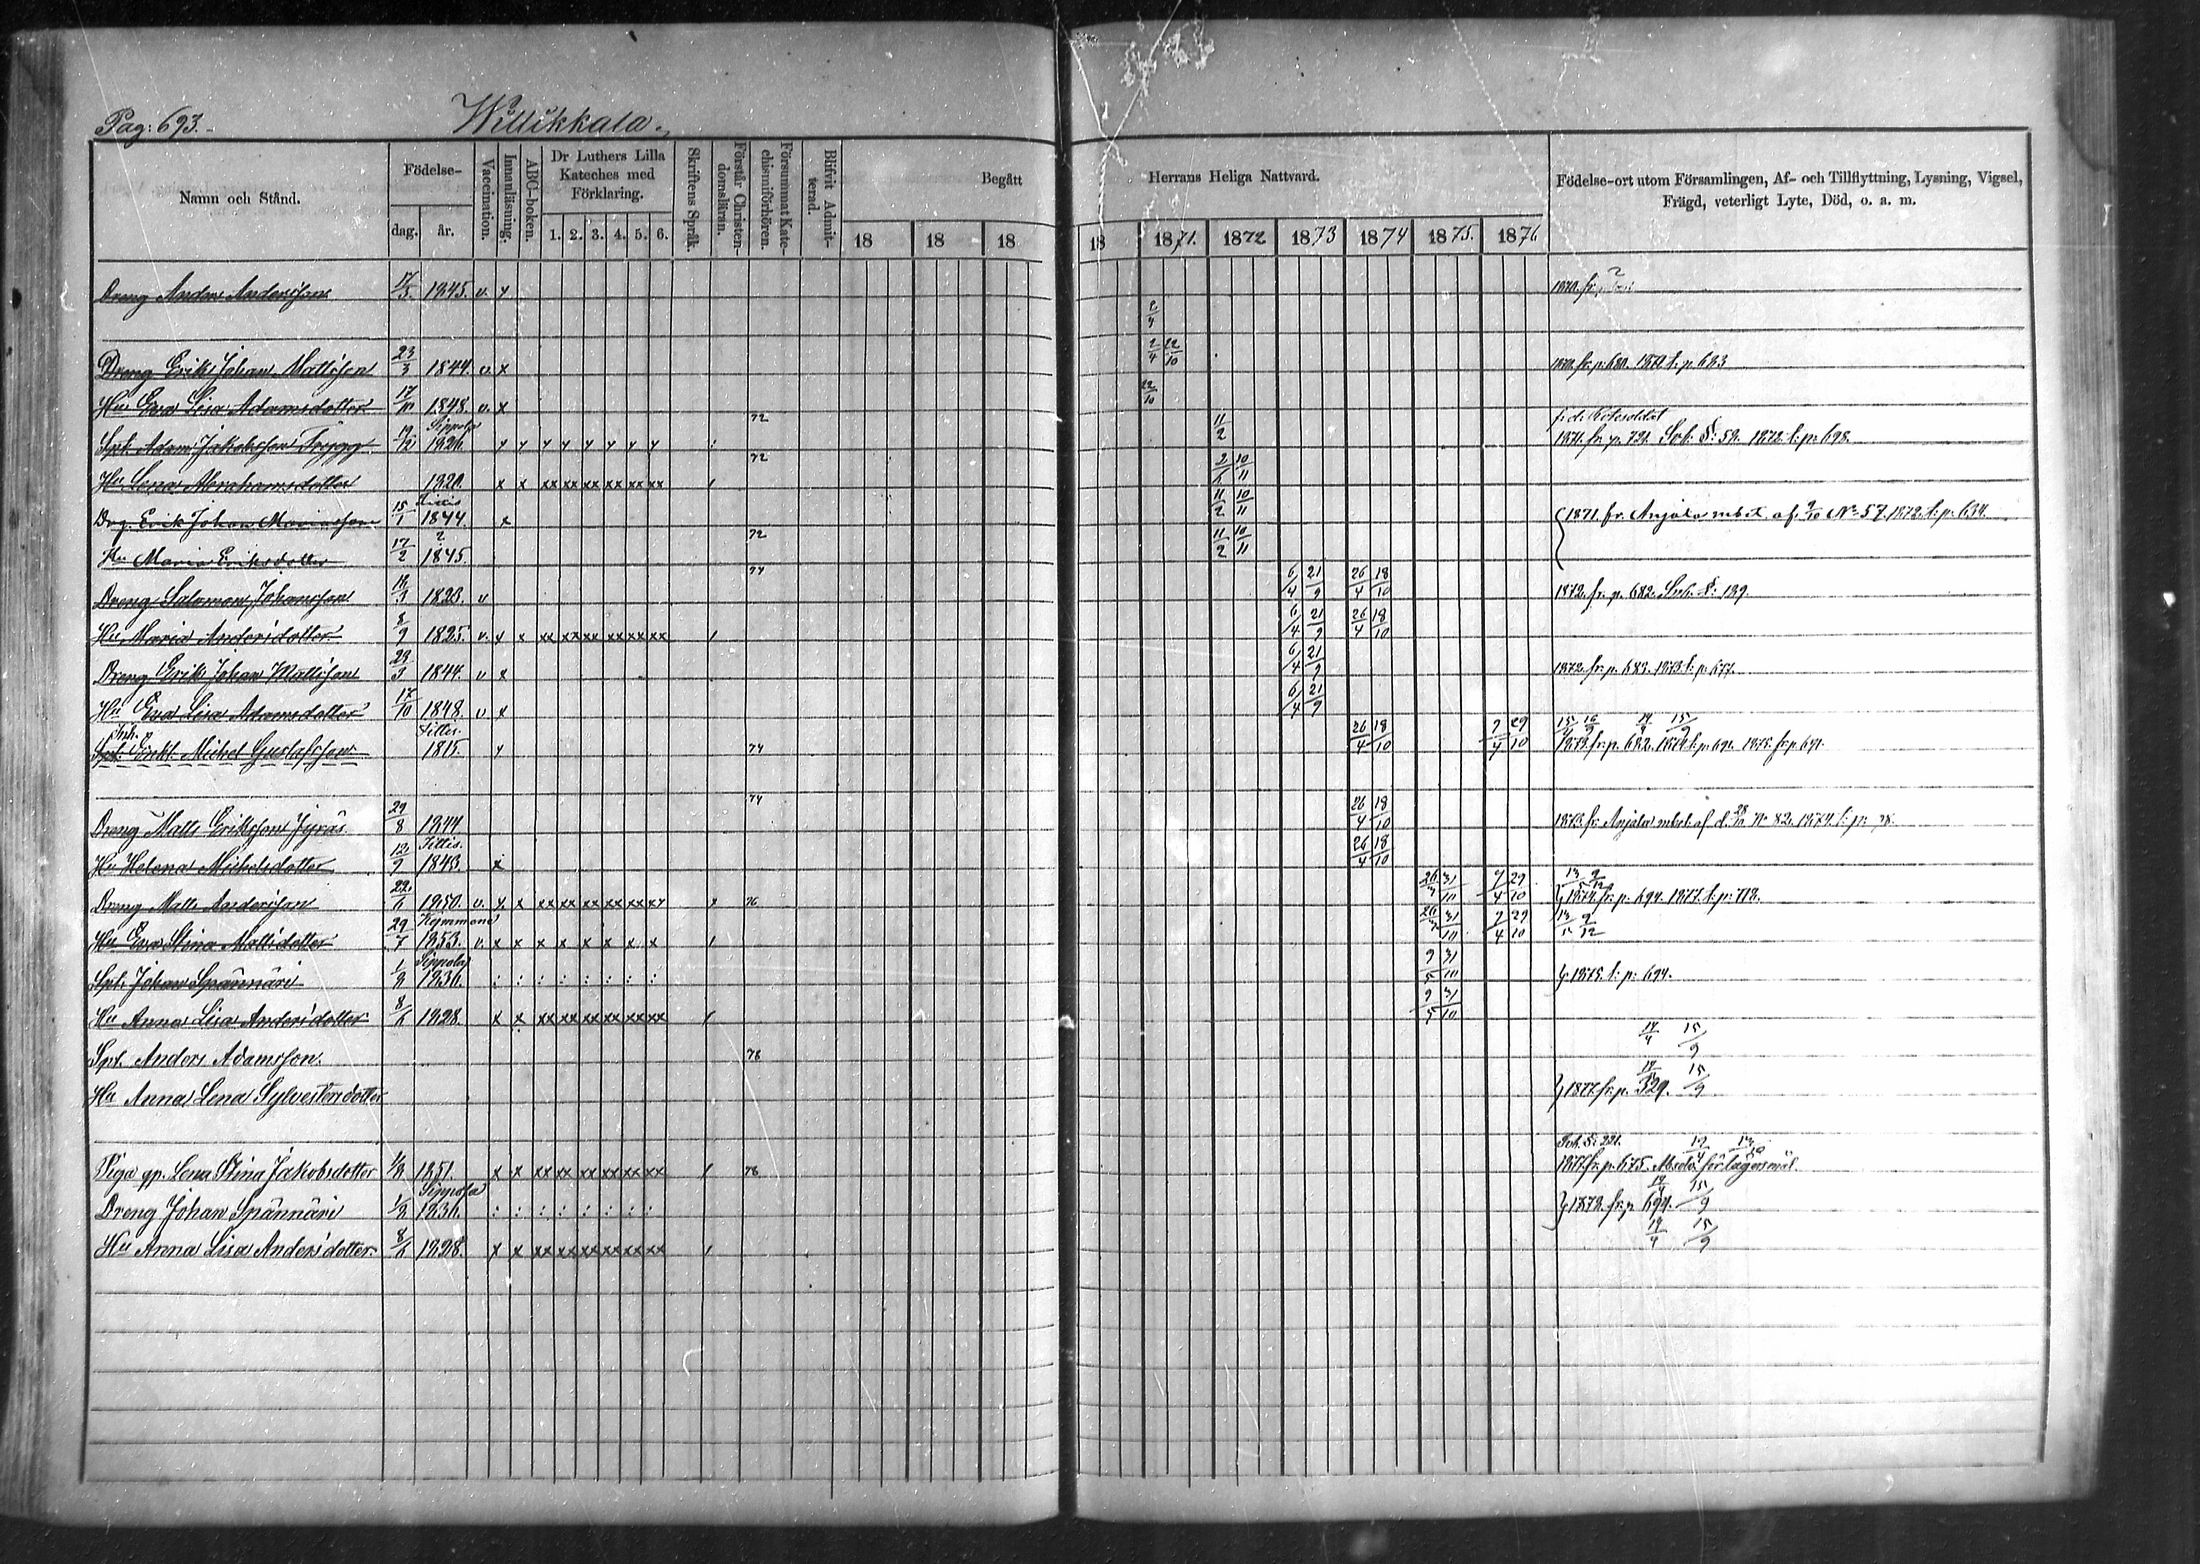 Pag: 693.
Willikkala.
Namn och Stånd.
Födelse-
dag. år.
Vaccination.
Innanläsning.
ABC-boken.
Dr Luthers Lilla
Kateches med
Förklaring.
1. 2. 3. 4. 5. 6.
Skriftens Språk.
Förstår Christen-
domsläran.
Försummat Kate-
chismiförhören.
Blifvit Admit-
terad.
Begått Herrans Heliga Nattvard.
18 18 18 18 1871. 1872 1873 1874 1875. 1876
Födelse-ort utom Församlingen, Af- och Tillflyttning, Lysning, Vigsel,
Frägd, veterligt Lyte, Död, o. a. m.
Dreng Anders Andersson 17/5. 1845. v. x 1870. fr.
2/4
Dreng Erik Johan Mattsson 23/3 1844. v. x 2/4 22/10 1870. fr. p. 680. 1872 t. p. 683
Hu Eva Lisa Adamsdotter 17/10 1848. v. x 22/10
Spt. Adam Jakobsson Trygg 19/12 Sippola 1826. 72 11/2 1871. fr. p. 721. Sok. §: 59. 1872. t. p. 698.
Hu Lena Abrahamsdotter 1820. x x xx xx xx xx xx xx 72 2/6 10/11
Drg. Erik Johan Mariasson 15/1 1844. x 11/2 10/11 1871. fr. Anjala mbet. af 9/10 No 57. 1872. t. p. 634.
Hu Maria Eriksdotter 17/2 ? 1845. 72 11/2 10/11
Dreng Salomon Johansson 18/3 1823. v 74 6/4 21/9 26/4 18/10 1872. fr. p. 682. Sok. §: 139.
Hu Maria Andersdotter 8/9 1825. v. x x xx xx xx xx xx xx 6/4 21/9 26/4 18/10
Dreng Erik Johan Mattsson 23/3 1844. v x 6/4 21/9 1872. fr. p. 683. 1873 t. p. 677.
Hu Eva Lisa Adamsdotter 17/10 1848. v x 6/4 21/9
Inh. Enkl. Michel Gustafsson 1815. x 74 26/4 18/10 2/4 29/10 1873. fr. p. 682. 1874 t. p. 691. 1875. fr. p. 691.
Dreng Matts Eriksson Jyräs 29/8 1844 74 26/4 18/10 1873. fr. Anjala mbet. af d. 28/10 No 82. 1874. t. p.
Hu Helena Michelsdotter 12/9 1843. x 26/4 18/10
Dreng Matts Andersson 22/6 1850. v. x x xx xx xx xx xx x 76 26/3 31/10 2/4 29/10 1874. fr. p. 694. 1877. t. p. 718.
Hu Eva Stina Mattsdotter 29/7 Kymmene 1853. v. x x x x x x x x 26/3 31/10 2/4 29/10 9/12
Spt. Johan Spännäri 1/8 Sippola 1836. : : : : : : : : 9/5 31/10 1875. t. p. 694.
Hu Anna Lisa Andersdotter 8/6 1828. x x xx xx xx xx xx xx 9/5 31/10
Spt. Anders Adamsson. 78 14/4 15/9
Hu Anna Lena Sylvestersdotter 1877. fr. p. 329. 15/9
Piga gp. Lena Stina Jakobsdotter 1/8 1851. x x xx xx xx xx xx xx 78 Sok. §: 221. 1877. fr. p. 675. Absolv. för lägersmål.
Dreng Johan Spännäri 1/8 Sippola 1836. : : : : : : : : 1878. fr. p. 694. 15/9
Hu Anna Lisa Andersdotter 8/6 1828. x x xx xx xx xx xx xx 14/4 15/9